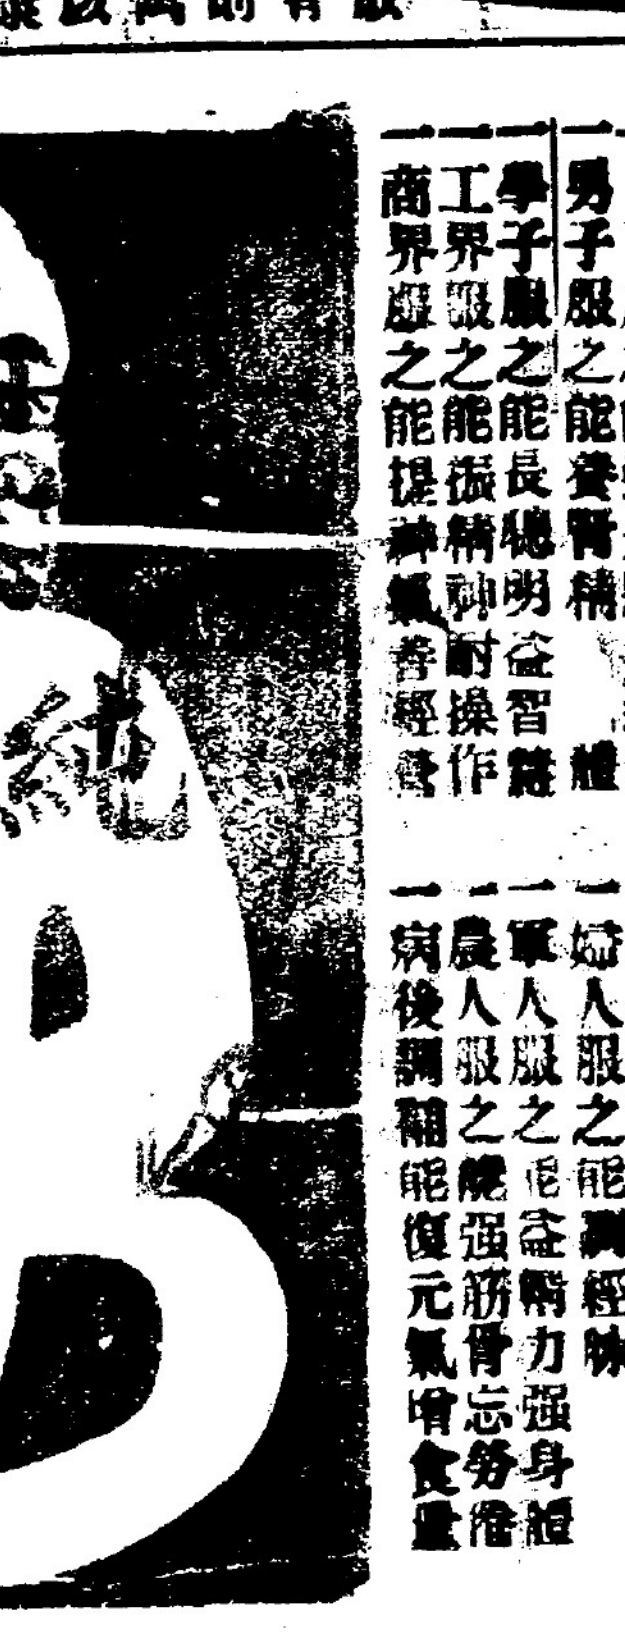 一男子服之能養腎精　體
一學子服之能長聰明益智慧
一工界服之能振精神耐操作
一商界服之能提神氣善經營
一婦人服之能調經脉
一軍人服之能益膂力强身體
一農人服之能强筋骨忘勞倦
一病後調補能復元氣增食量
純